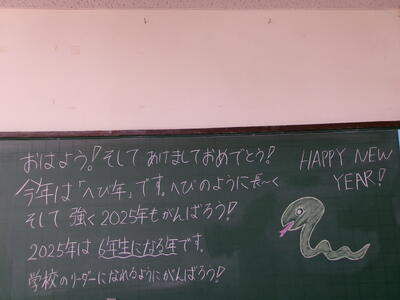 おはよう!そして あけましておめでとう!
今年は「へび年」です。へびのように長〜く
そして 強く2025年もがんばろう!
2025年は 6年生になる年です。
学校のリーダーになれるようにがんばろう!
HAPPY NEW
YEAR!